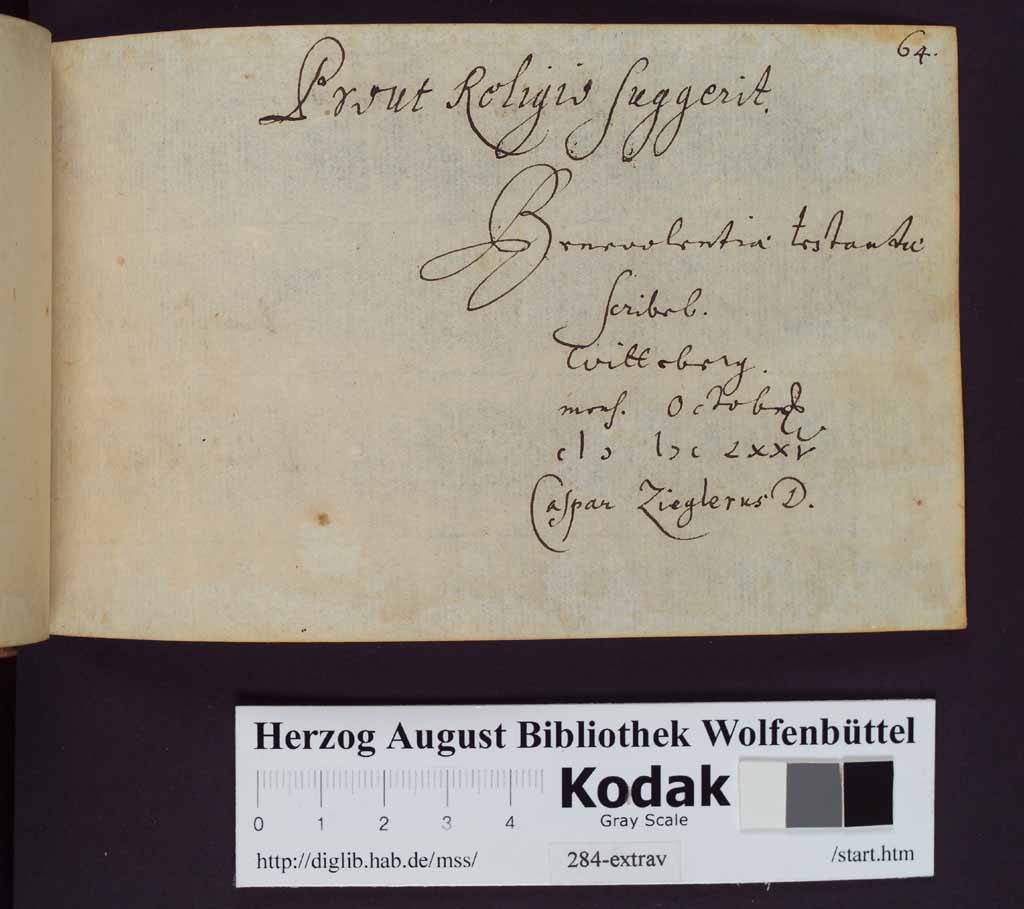 64.
Prout Religio suggerit.
Benevolentiæ testandæ
scribeb.
Witteberg.
mens. Octobr
cIɔ Iɔc LXXV
Caspar Zieglerus D.
Herzog August Bibliothek Wolfenbüttel
Kodak
Gray Scale
0 1 2 3 4
http://diglib.hab.de/mss/ 284-extrav /start.htm